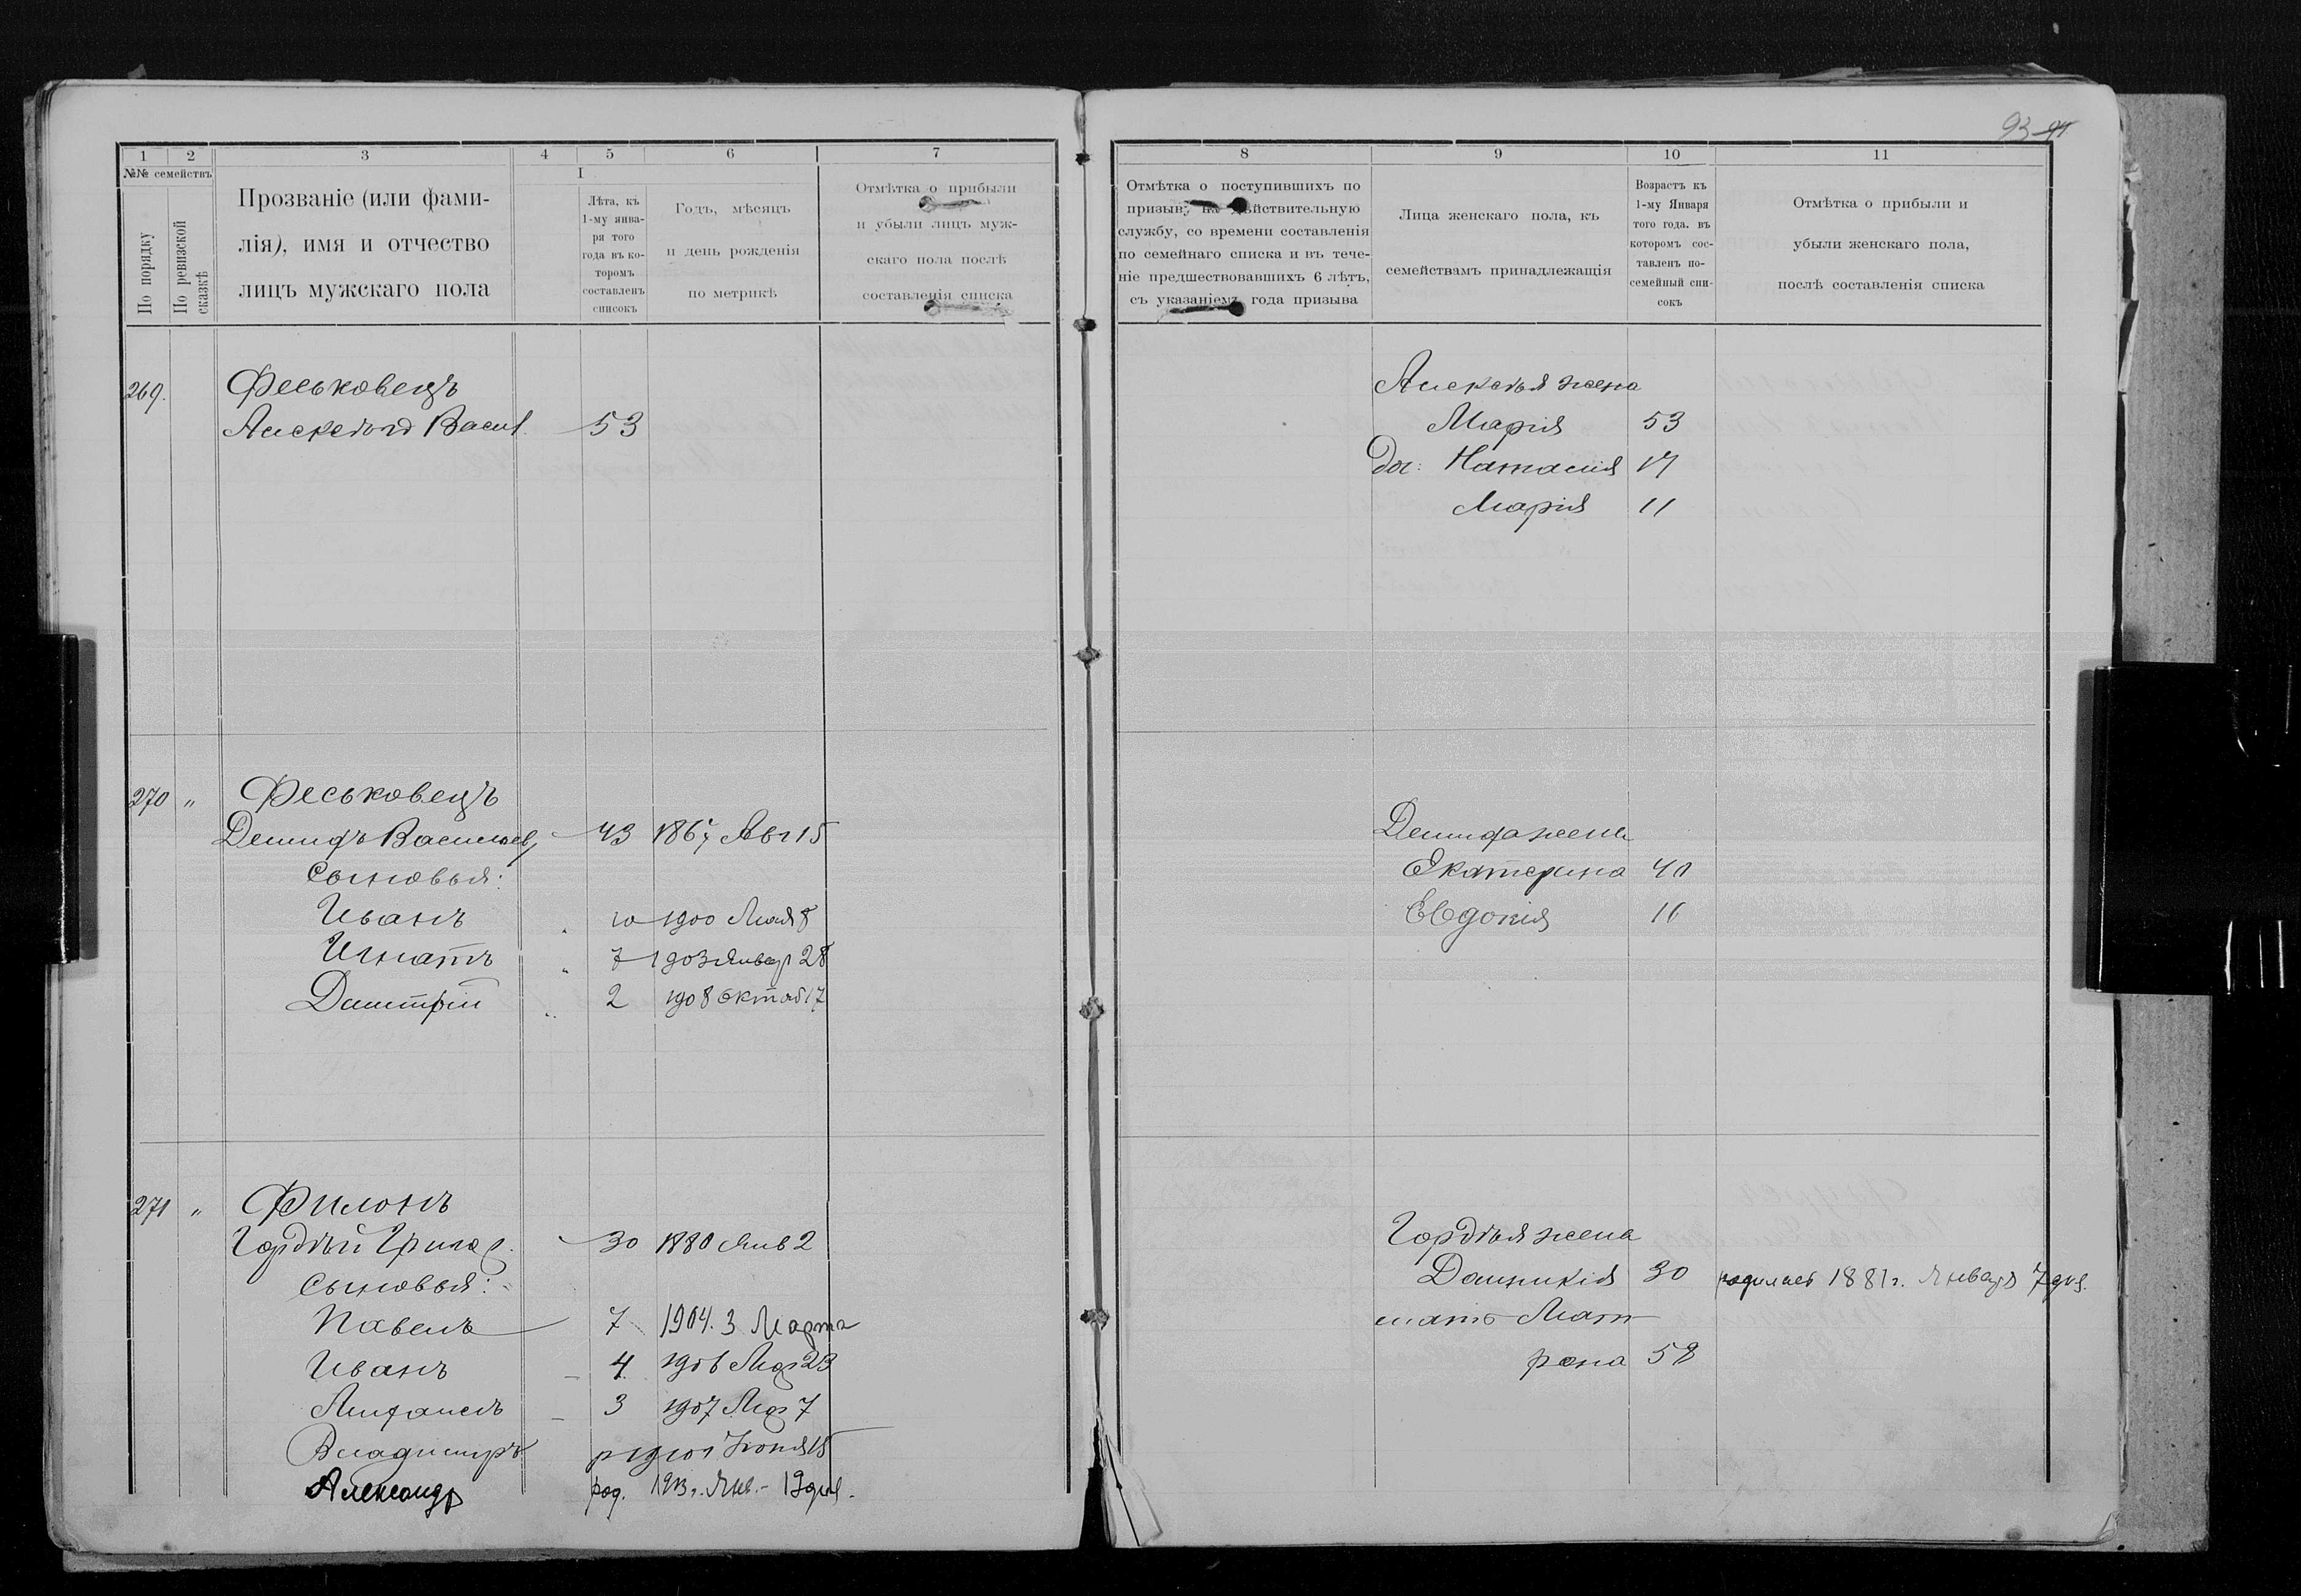 93 91
1 2 3 4 5 6 7
№№ семействъ
По порядку
По ревизской сказкѣ
Прозваніе (или фами-
лія), имя и отчество
лицъ мужскаго пола
I
Лѣта, къ
1-му янва-
ря того
года въ ко-
торомъ
составленъ
списокъ
Годъ, мѣсяцъ
и день рожденія
по метрикѣ
Отмѣтка о прибыли
и убыли лицъ муж-
скаго пола послѣ
составленія списка
269.
Феськовецъ
Алексѣй Васил. 53
270 "
Феськовецъ
Демидъ Васильев 43 1867 Авг 15
Сыновья:
Иванъ " 10 1900 Мая 8
Игнатъ " 7 1903 Январ 28
Дмитрій " 2 1908 Октяб 17
271 "
Филонъ
Гордѣй Григор. 30 1880 Янв 2
Сыновья:
Павелъ 7 1904. 3 Марта
Иванъ 4 1906
Анфанелъ 3 1907
Владимиръ Іюня 15
Александр род. 1913 г. Янв. - 19 дня.
8 9 10 11
Отмѣтка о поступившихъ по
призыву на дѣйствительную
службу, со времени составленія
по семейнаго списка и въ тече-
ніе предшествовавшихъ 6 лѣтъ,
съ указаніемъ года призыва
Лица женскаго пола, къ
семействамъ принадлежащія
Возрастъ къ
1-му Января
того года. въ
которомъ сос-
тавленъ по-
семейный спи-
сокъ
Отмѣтка о прибыли и
убыли женскаго пола,
послѣ составленія списка
Алексѣя жена
Марія 53
доч: Натасія 17
Марія 11
Демида жена
Екатерина 40
Евдокія 16
Гордѣя жена
Домникія 30 родилась 1881 г. Январь 7 дня.
мать Мат
рона 58